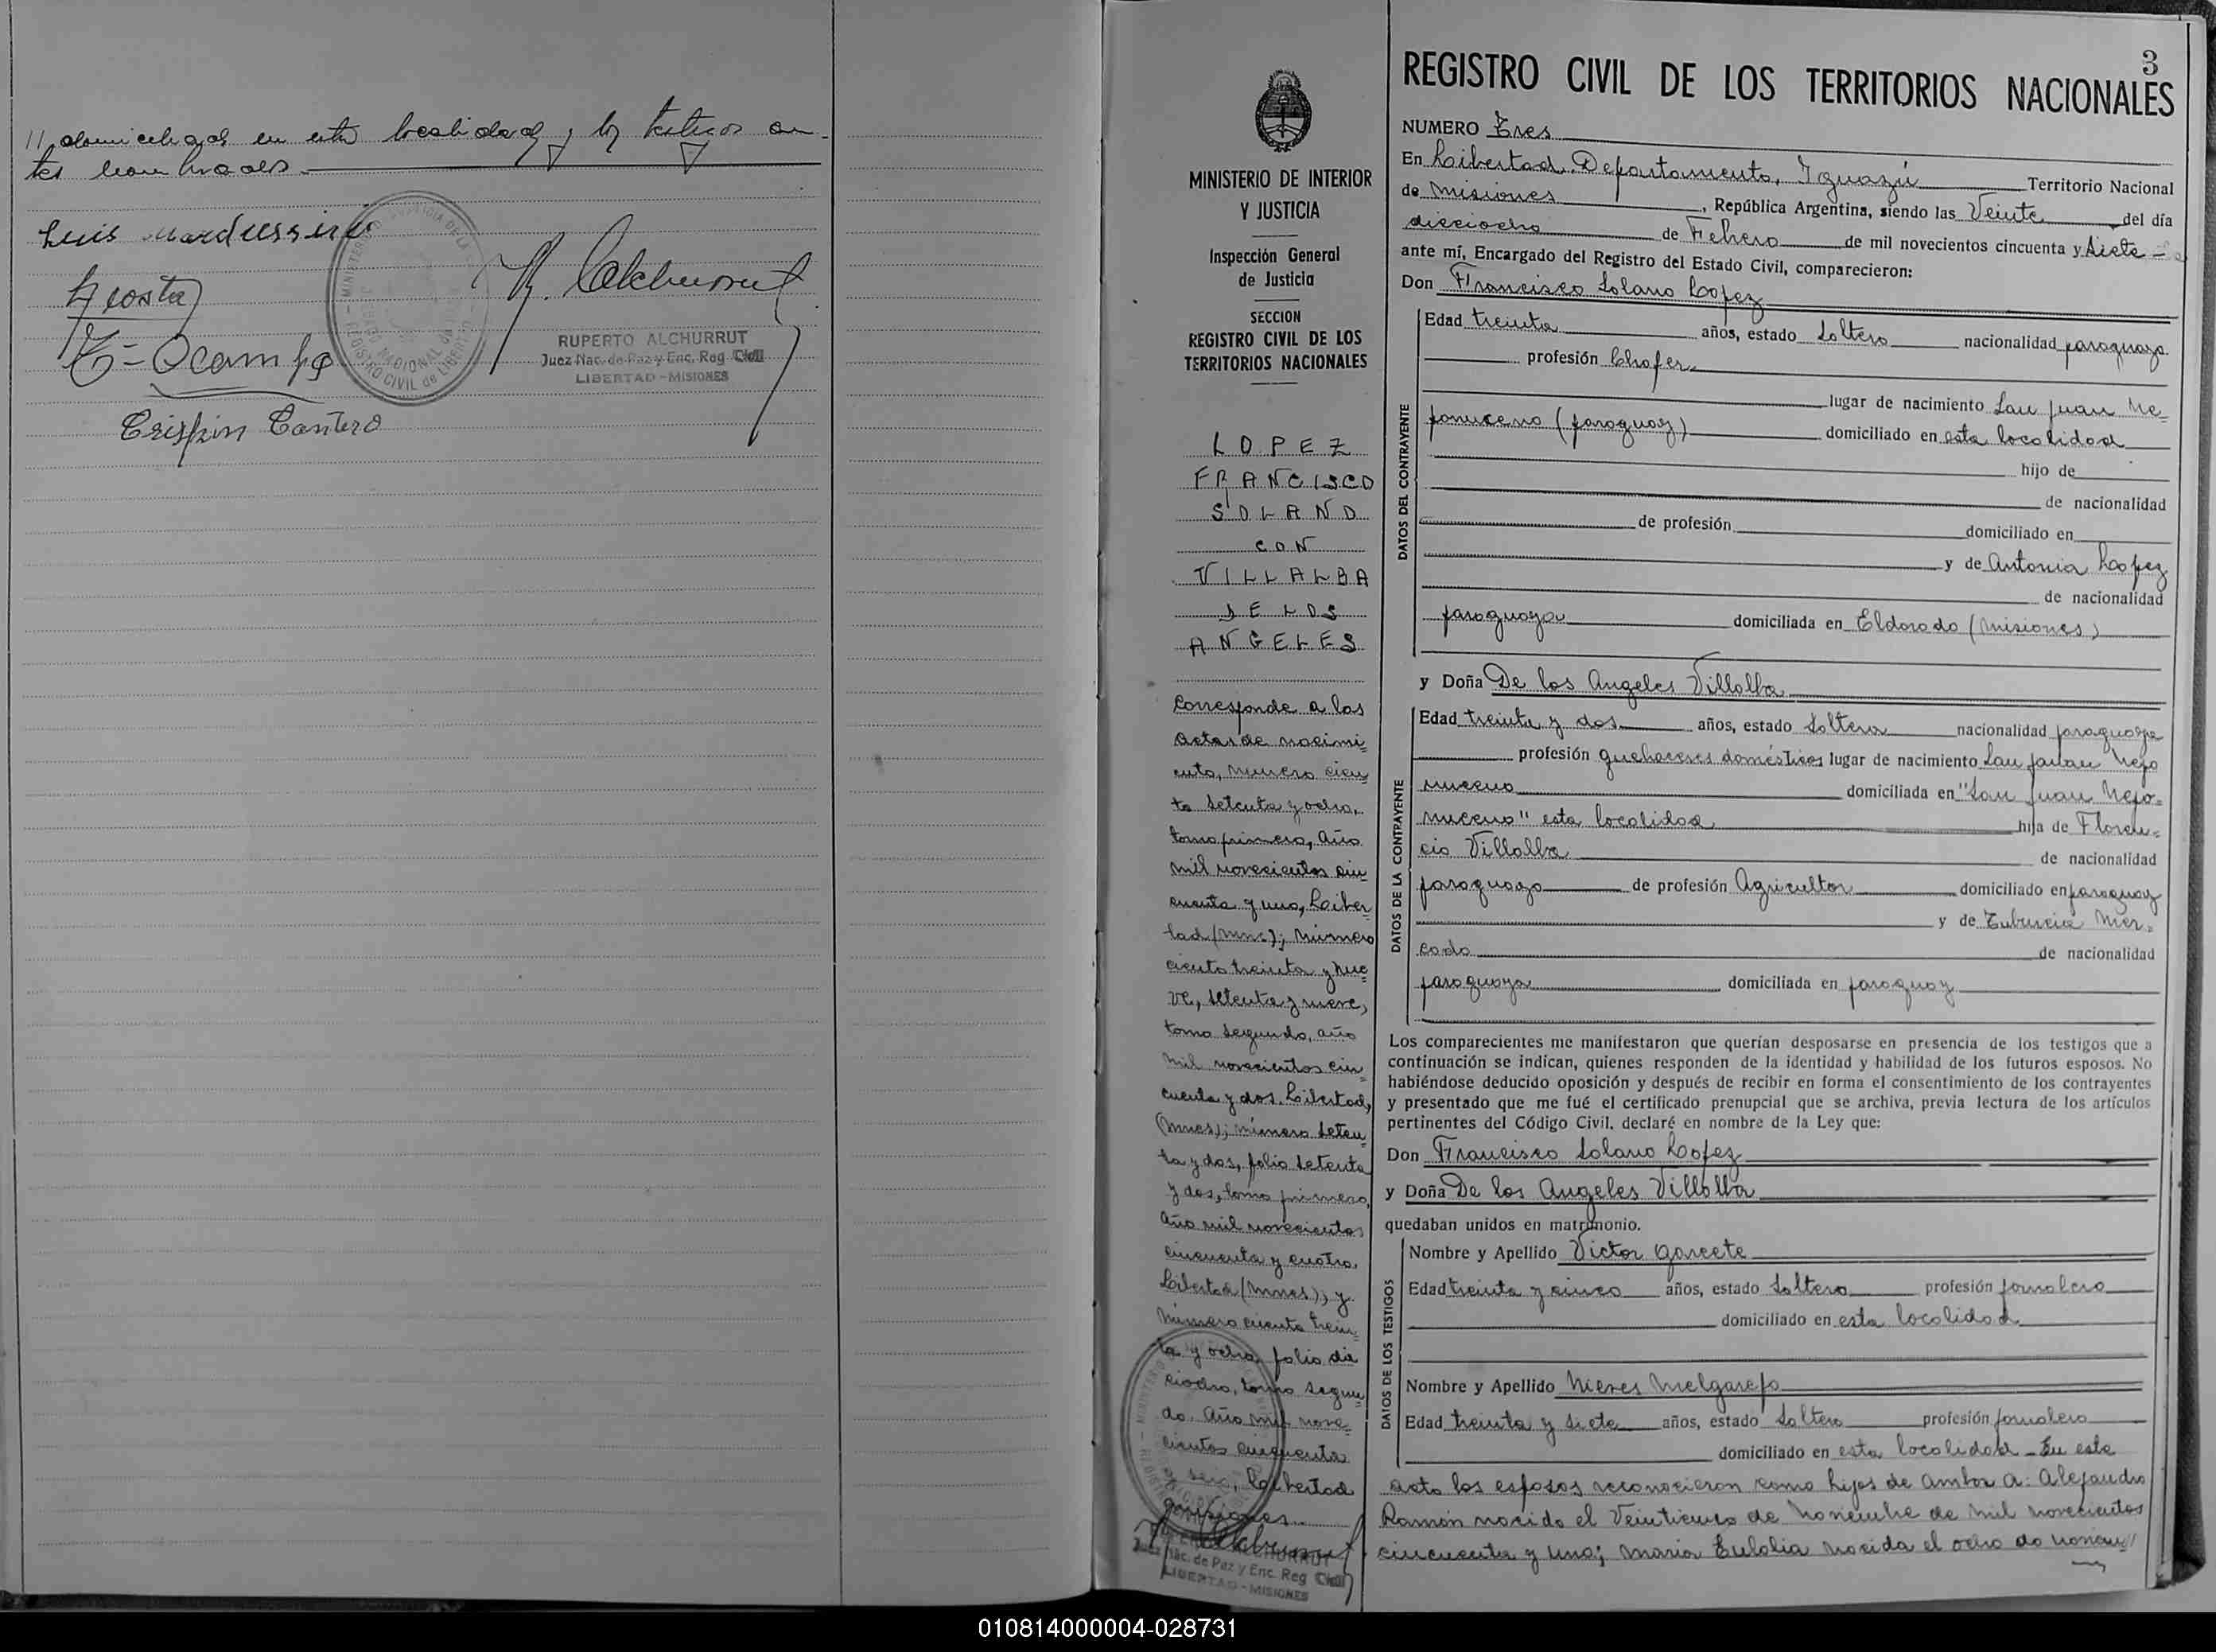 // domiciliados en esta localidad y los testigos an-
tes nombrados.
Luis
Acosta
E = Ocampo
Crispin Cantero
R. Alchurrut
RUPERTO ALCHURRUT
Juez Nac. de Paz y Enc. Reg. Civil
LIBERTAD - MISIONES
REGISTRO CIVIL de LIBERTAD
MINISTERIO DE INTERIOR
Y JUSTICIA
Inspección General
de Justicia
SECCION
REGISTRO CIVIL DE LOS
TERRITORIOS NACIONALES
LOPEZ
FRANCISCO
SOLANO
CON
VILLALBA
DE LOS
ANGELES
Corresponde a las
actas de nacimi-
ento, número cien
to setenta y ocho,
tomo primero, año
mil novecientos cin
cuenta y uno, Liber-
tad (Mnes); número
ciento treinta y nue
ve, setenta y nueve,
tomo segundo, año
mil novecientos cin-
cuenta y dos, Libertad,
(Mnes); número seten-
ta y dos, folio setenta
y dos, tomo primero,
año mil novecientos
cincuenta y cuatro,
Libertad (Mnes); y
número ciento trein-
ta y ocho, folio die
ciocho, tomo segun
do. Año mil nove-
cientos cincuenta
y seis, Libertad
Misiones.
Juez Nac. de Paz y Enc. Reg. Civil
LIBERTAD - MISIONES
3
REGISTRO CIVIL DE LOS TERRITORIOS NACIONALES
NUMERO Tres
En Libertad, Departamento, Iguazú Territorio Nacional
de Misiones, República Argentina, siendo las Veinte del día
dieciocho de Febrero de mil novecientos cincuenta y Siete
ante mí, Encargado del Registro del Estado Civil, comparecieron:
Don Francisco Solano Lopez
DATOS DEL CONTRAYENTE
Edad treinta años, estado Soltero nacionalidad paraguaya
profesión Chofer
lugar de nacimiento San Juan Ne-
pomuceno (paraguay) domiciliado en esta localidad
hijo de
de nacionalidad
de profesión domiciliado en
y de Antonia Lopez
de nacionalidad
paraguaya domiciliada en Eldorado (Misiones)
y Doña De los Angeles Villalba
DATOS DE LA CONTRAYENTE
Edad treinta y dos años, estado Soltera nacionalidad paraguaya
profesión quehaceres domésticos lugar de nacimiento San Juan Nepo
muceno domiciliada en "San Juan Nepo-
muceno" esta localidad hija de Floren-
cio Villalba de nacionalidad
paraguayo de profesión Agricultor domiciliado en paraguay
y de Tuburcia Mer-
cado de nacionalidad
paraguaya domiciliada en paraguay
Los comparecientes me manifestaron que querían desposarse en presencia de los testigos que a
continuación se indican, quienes responden de la identidad y habilidad de los futuros esposos. No
habiéndose deducido oposición y después de recibir en forma el consentimiento de los contrayentes
y presentado que me fué el certificado prenupcial que se archiva, previa lectura de los artículos
pertinentes del Código Civil, declaré en nombre de la Ley que:
Don Francisco Solano Lopez
y Doña De los Angeles Villalba
quedaban unidos en matrimonio.
DATOS DE LOS TESTIGOS
Nombre y Apellido Victor Garcete
Edad treinta y cinco años, estado Soltero profesión jornalero
domiciliado en esta localidad
Nombre y Apellido Nieves Melgarejo
Edad treinta y siete años, estado Soltero profesión jornalero
domiciliado en esta localidad - En este
acto los esposos reconocieron como hijos de ambos a: Alejandro
Ramón nacido el Veinticinco de Noviembre de mil novecientos
cincuenta y uno; María Eulalia nacida el ocho de noviem//
010814000004-028731